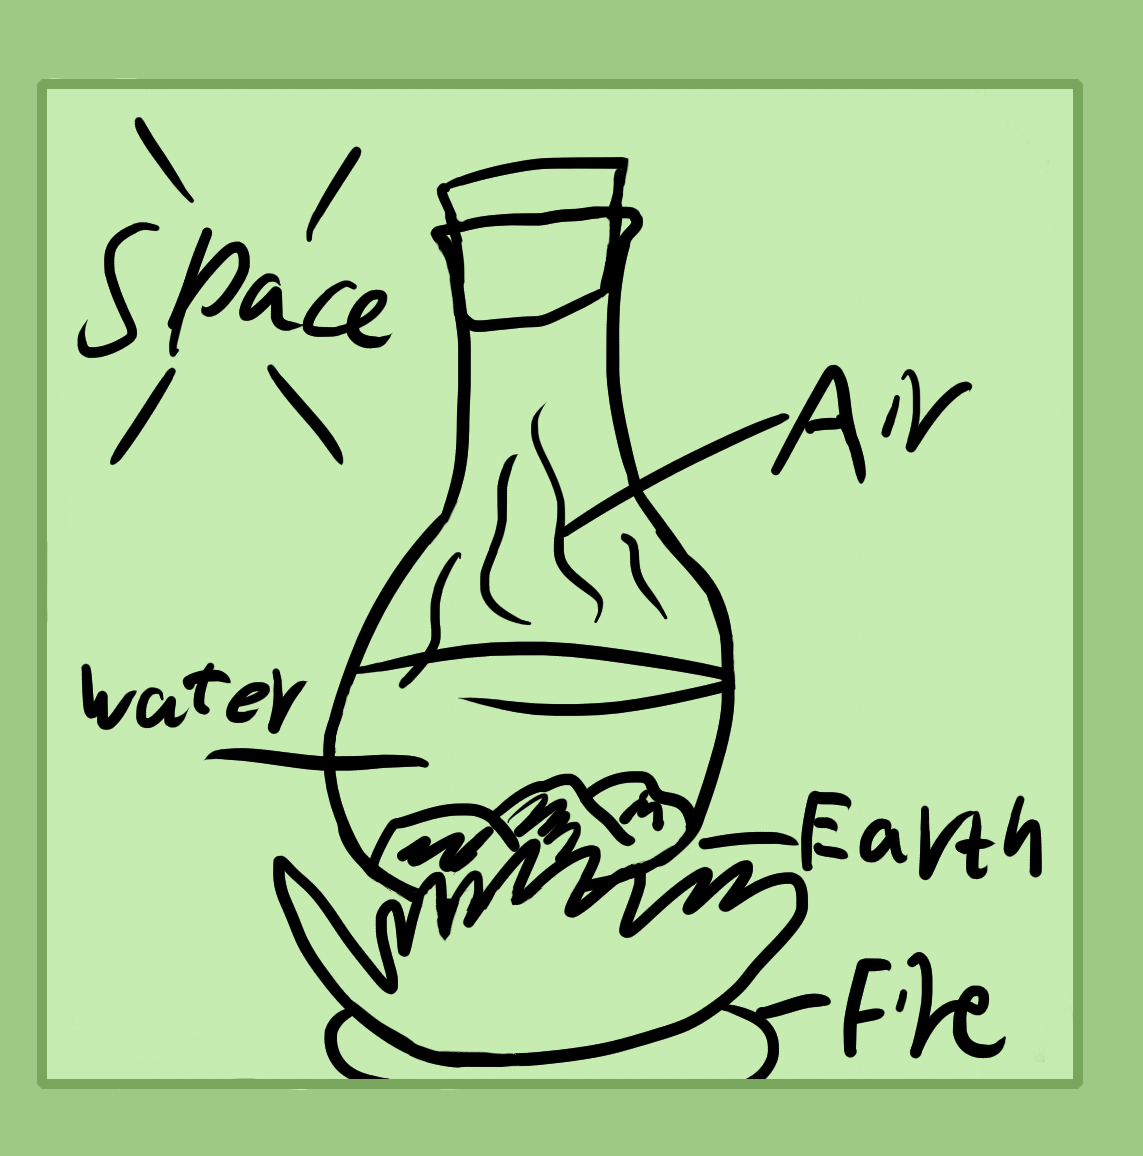 Space
Air
water
Earth
Fire